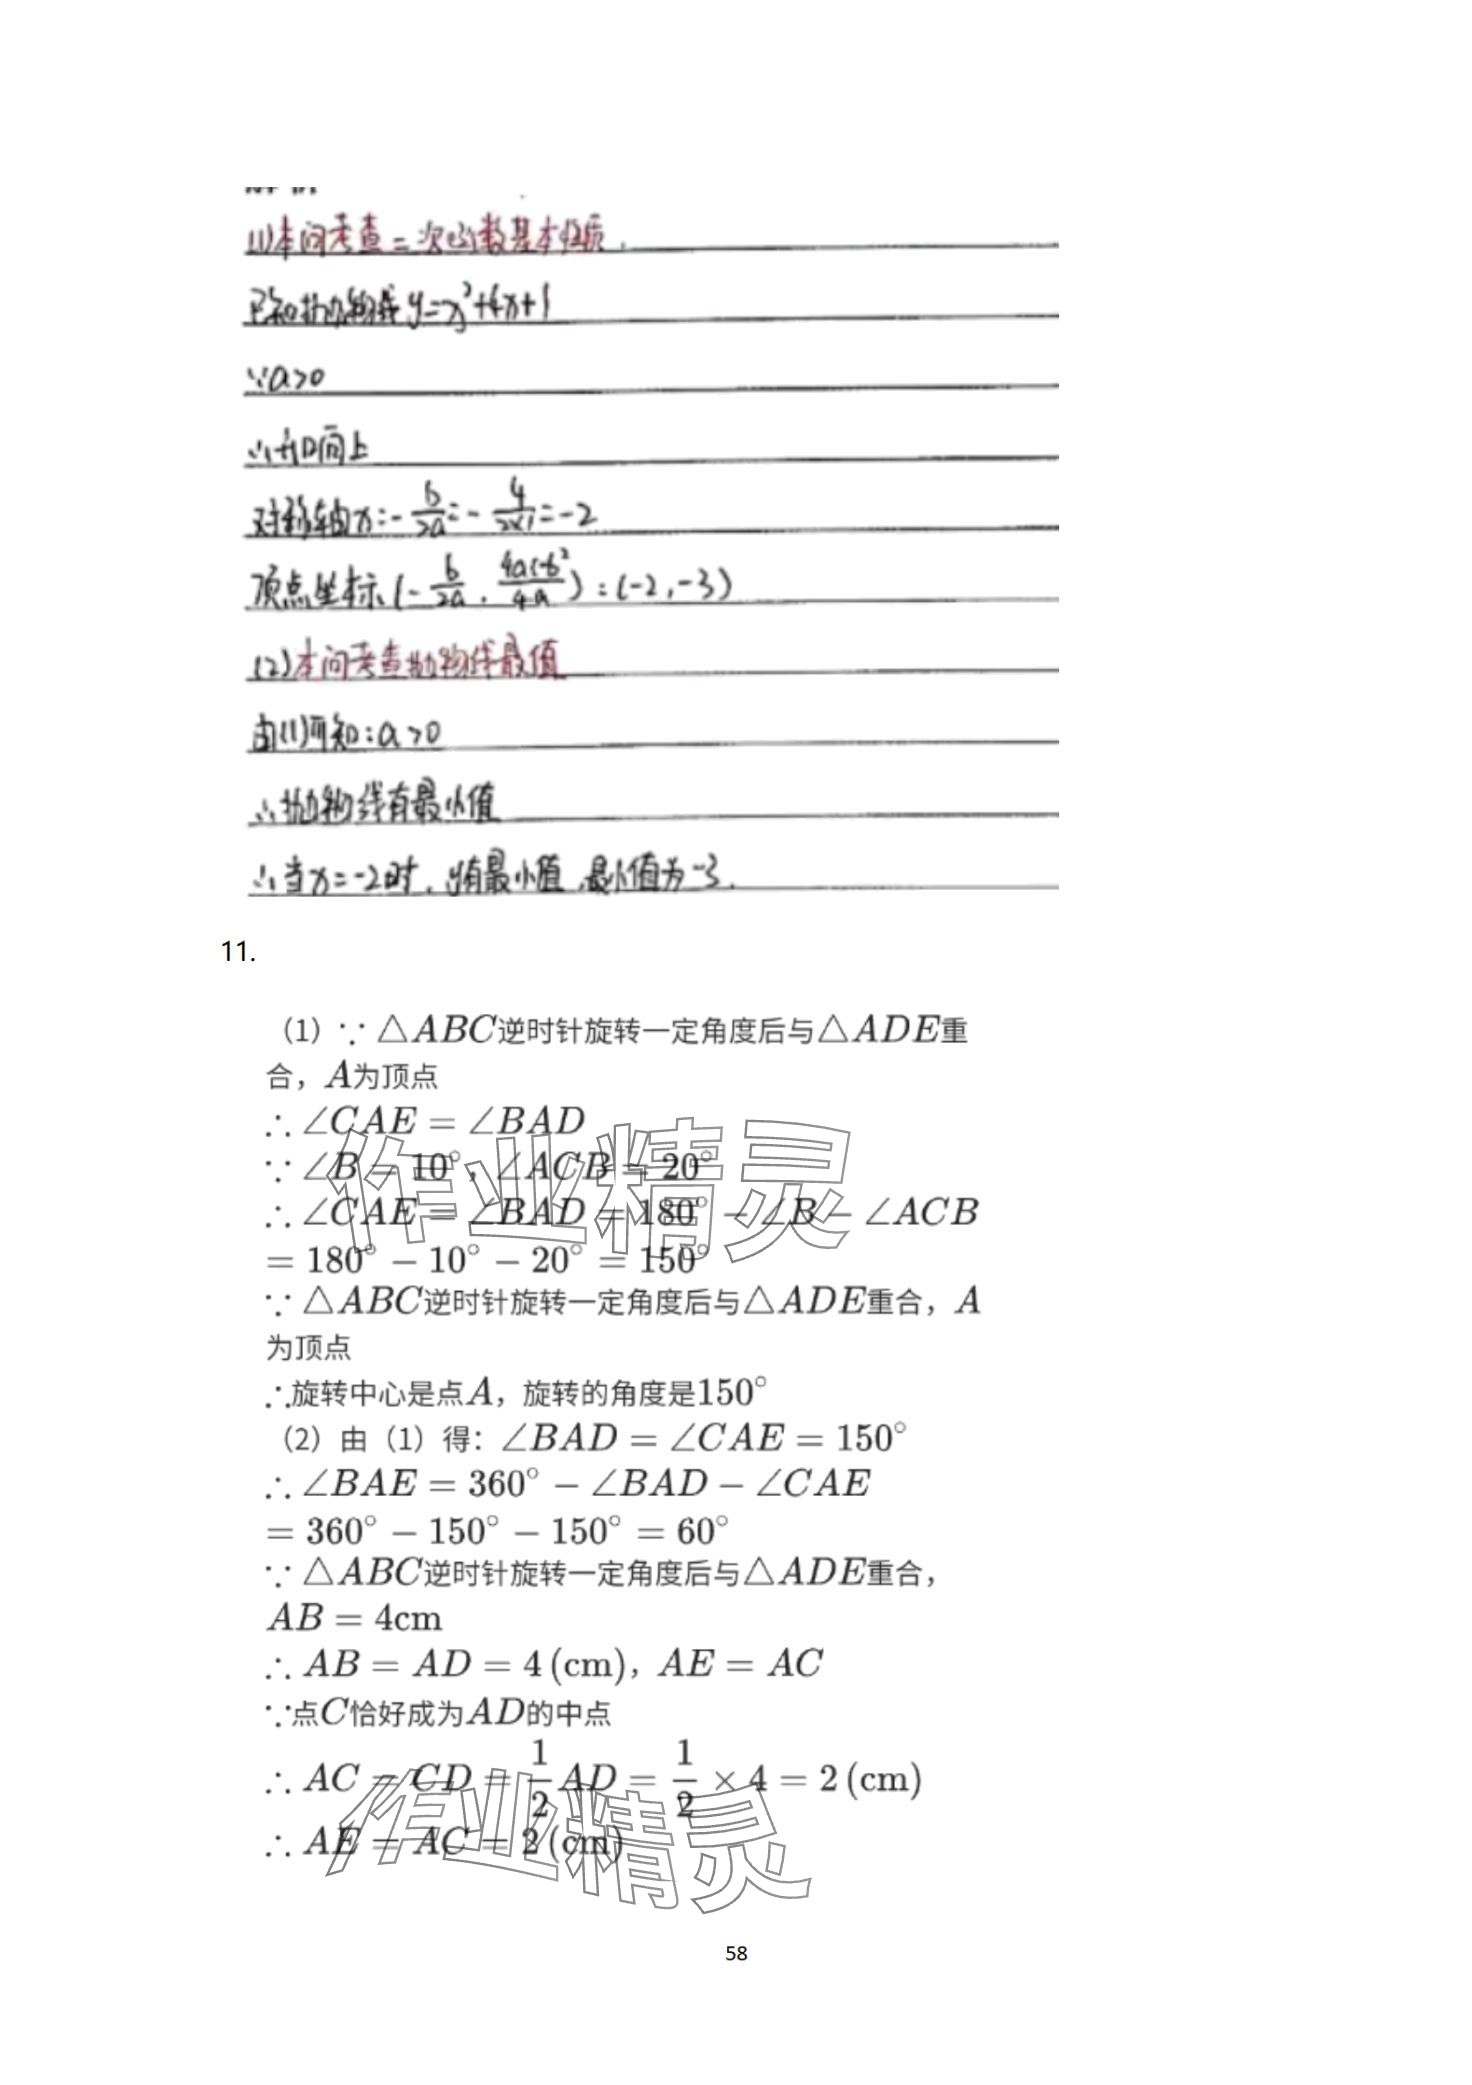 (1)本问考查二次函数基本性质.
已知抛物线y=x²+4x+1
∵a>0
∴开口向上
对称轴x=-b/2a=-4/2×1=-2
顶点坐标(-b/2a,4ac-b²/4a)=(-2,-3)
(2)本问考查抛物线最值
由(1)可知:a>0
∴抛物线有最小值
∴当x=-2时,y有最小值,最小值为-3.
11.
（1）∵△ABC逆时针旋转一定角度后与△ADE重
合，A为顶点
∴∠CAE=∠BAD
∵∠B=10°,∠ACB=20°
∴∠CAE=∠BAD=180°-∠B-∠ACB
=180°-10°-20°=150°
∵△ABC逆时针旋转一定角度后与△ADE重合，A
为顶点
∴旋转中心是点A，旋转的角度是150°
（2）由（1）得：∠BAD=∠CAE=150°
∴∠BAE=360°-∠BAD-∠CAE
=360°-150°-150°=60°
∵△ABC逆时针旋转一定角度后与△ADE重合，
AB=4cm
∴AB=AD=4(cm)，AE=AC
∵点C恰好成为AD的中点
∴AC=CD=1/2AD=1/2×4=2(cm)
∴AE=AC=2(cm)
作业精灵
作业精灵
58